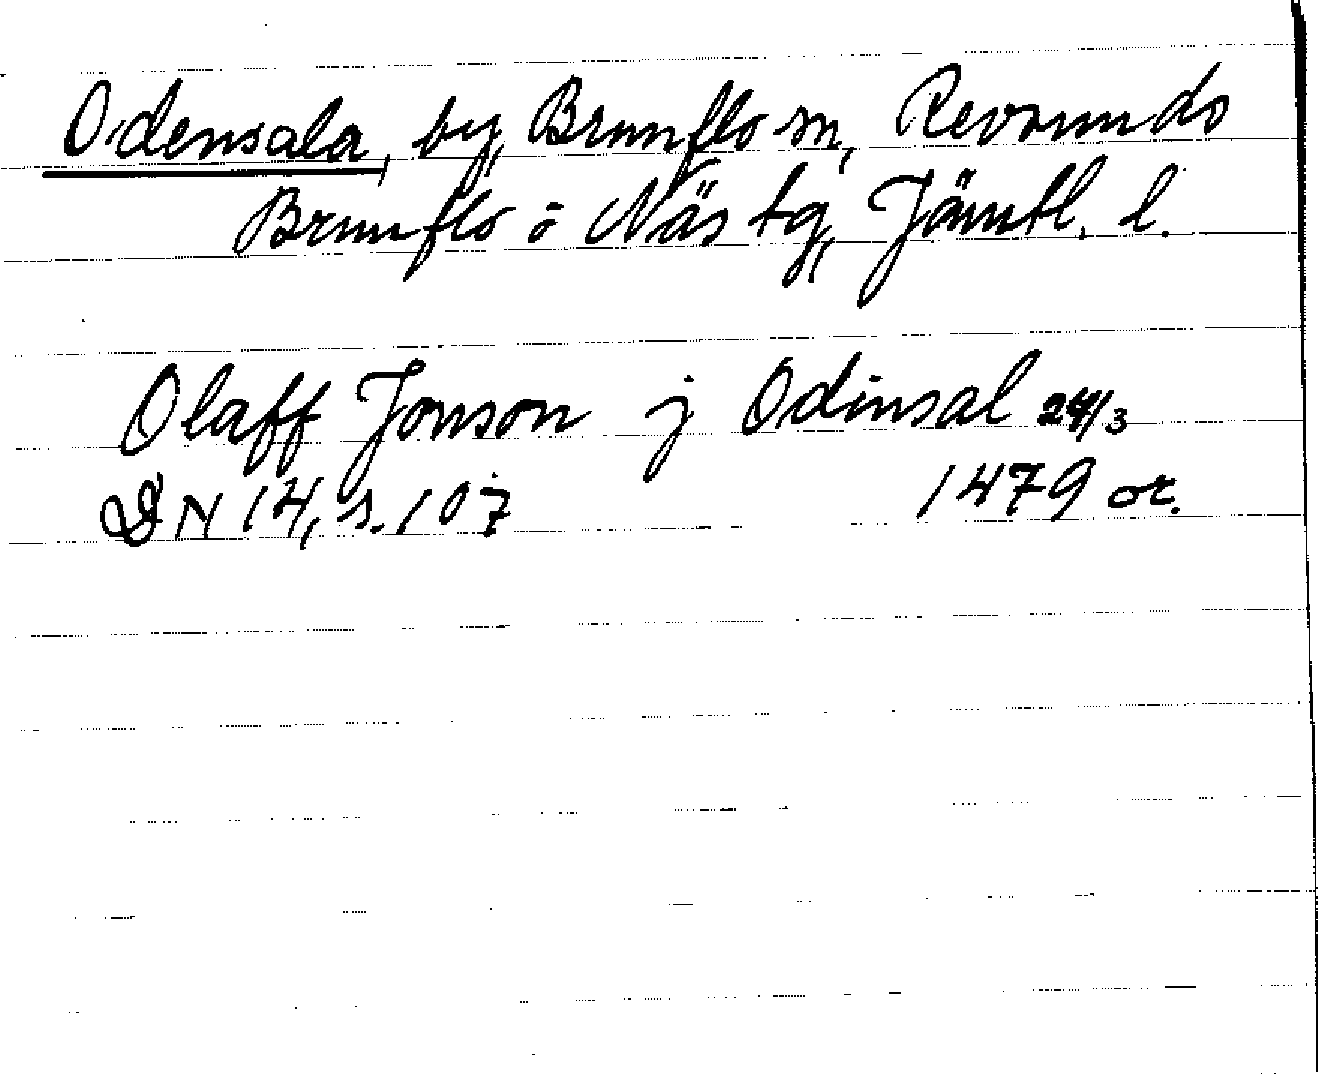 Odensala, by, Brunflo sn, Revsunds
Brunflo o Näs tg, Jämtl. l.
Olaff Jonson j Odinsal 24/3
DN 14, s. 107 1479 or.